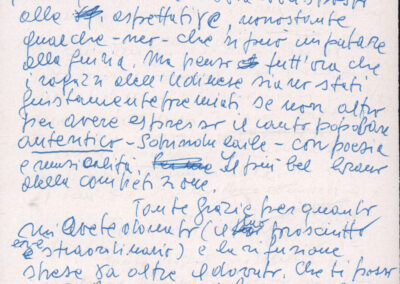 alla aspettative, nonostante
qualche-neo-che si può imputare
alla giuria. Ma penso tutt'ora che
i ragazzi dell'Udinese siano stati
giustamente premiati se non altro
per avere espresso il canto popolare
autentico - con poesia
e musicalità. Il più bel brano
della competizione.
Tante grazie per quanto
mi avete donato (il prosciutto
era straordinario) e la rifusione
spese fa oltre il dovuto. Che ti posso